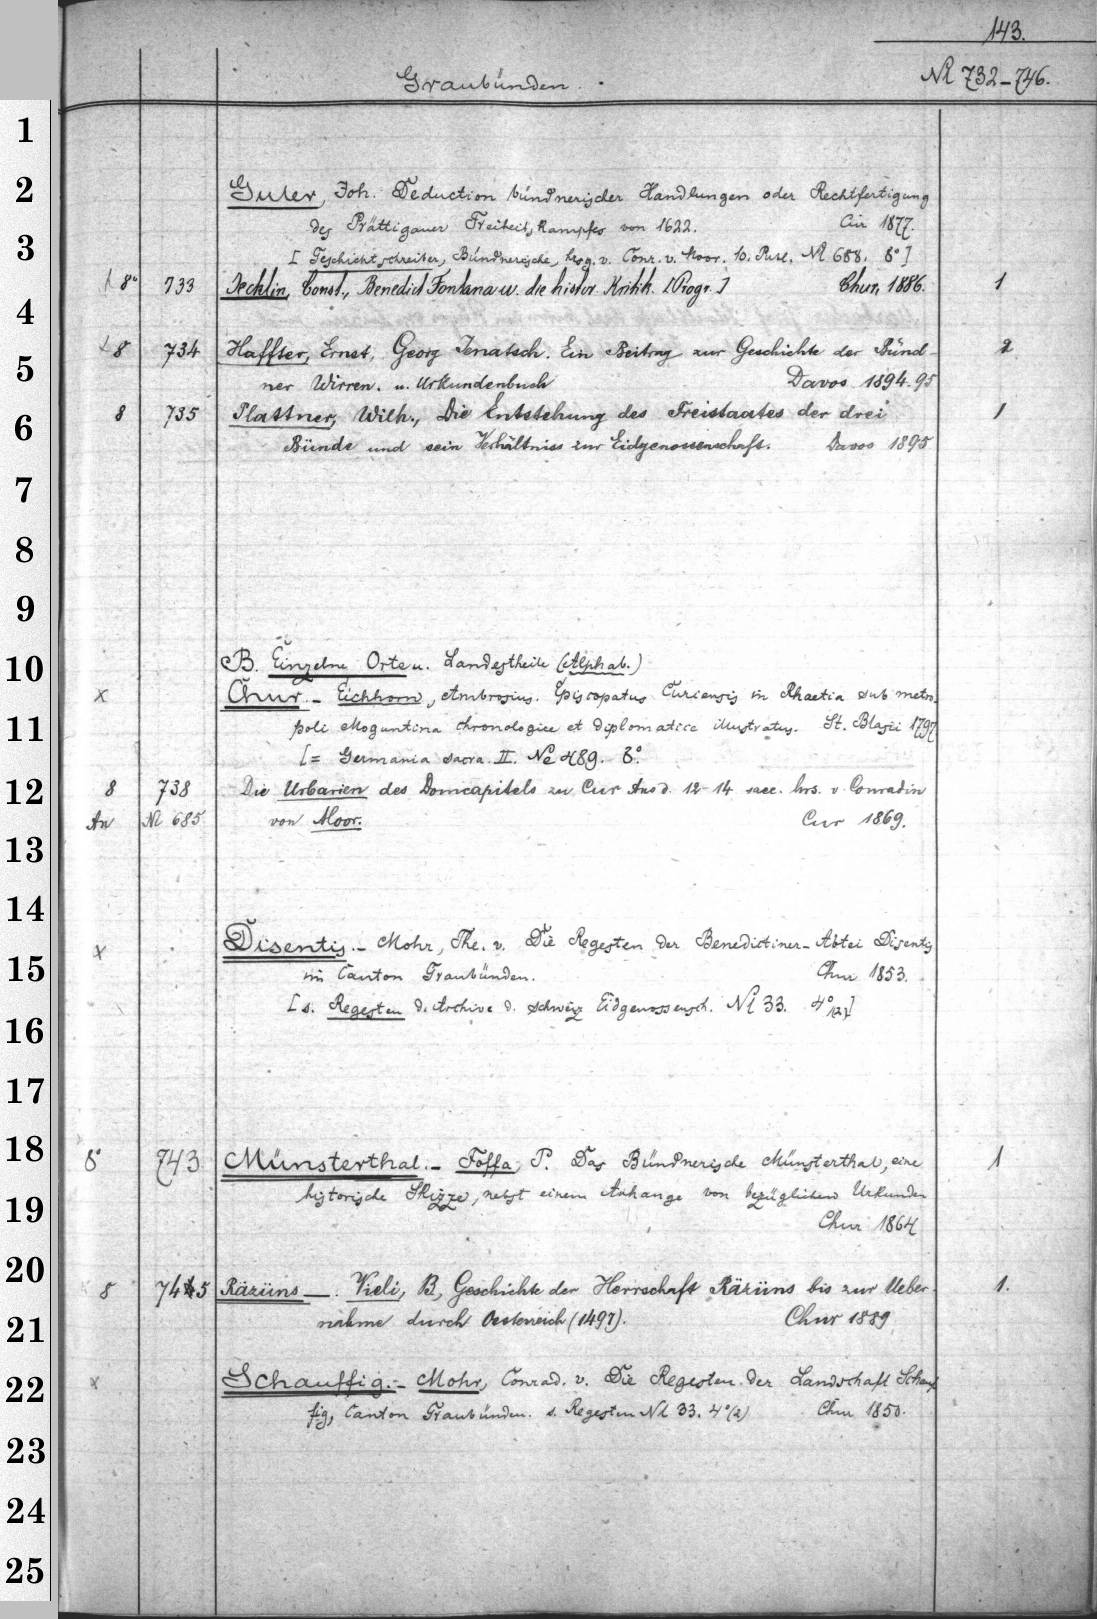 143.
Graubünden. NR 732–746.
1
2 Guler, Joh. Deduction bündnerischer Handlungen oder Rechtfertigung
des Prättigauer Freiheitskampfes von 1622. Cur 1877.
3 [Geschichtschreiber, Bündnerische, hrsg. v. Conr. v. Moor. 10. NR 688. 8°]
8° 733 Jecklin, Const., Benedict Fontana u. die histor. Kritik. [Progr.] Chur, 1886. 1
4
8 734 Haffter, Ernst, Georg Jenatsch. Ein Beitrag zur Geschichte der Bünd-
5 ner Wirren. u. Urkundenbuch Davos 1894.95
8 735 Plattner, Wilh., Die Entstehung des Freistaates der drei 1
6 Bünde und sein Verhältniss zur Eidgenossenschaft. Davos 1895
7
8
9
10 B. Einzelne Orte u. Landestheile (Alphab.)
x Chur. – Eichhorn, Ambrosius. Episcopatus Curiensis in Rhaetia sub metro-
11 poli Moguntina chronologice et diplomatice illustratus. St. Blasii 1797
[= Germania sacra. II. No 489. 8°.
12 8 738 Die Urbarien des Domcapitels zu Cur Aus d. 12–14 saec. hrs. v. Conradin
An NR 685 von Moor. Cur 1869.
13
14
x Disentis. – Mohr, The. v. Die Regesten der Benedictiner-Abtei Disentis
15 im Canton Graubünden. Chur 1853.
[s. Regesten d. Archive d. schweiz Eidgenossensch. NR 33. 4°/(2)]
16
17
18 8° 743 Münsterthal. – Foffa, P. Das Bündnerische Münsterthal, eine 1
19 historische Skizze, nebst einem Anhange von bezüglichen Urkunden
Chur 1864
20 8 745 Räzüns —. Vieli, B, Geschichte der Herrschaft Räzüns bis zur Ueber- 1.
21 nahme durch Oesterreich (1497). Chur 1889
22 x Schanffig. – Mohr, Conrad. v. Die Regesten der Landschaft Schanf
fig, Canton Graubünden. s. Regesten NR 33. 4°(2) Chur 1850.
23
24
25